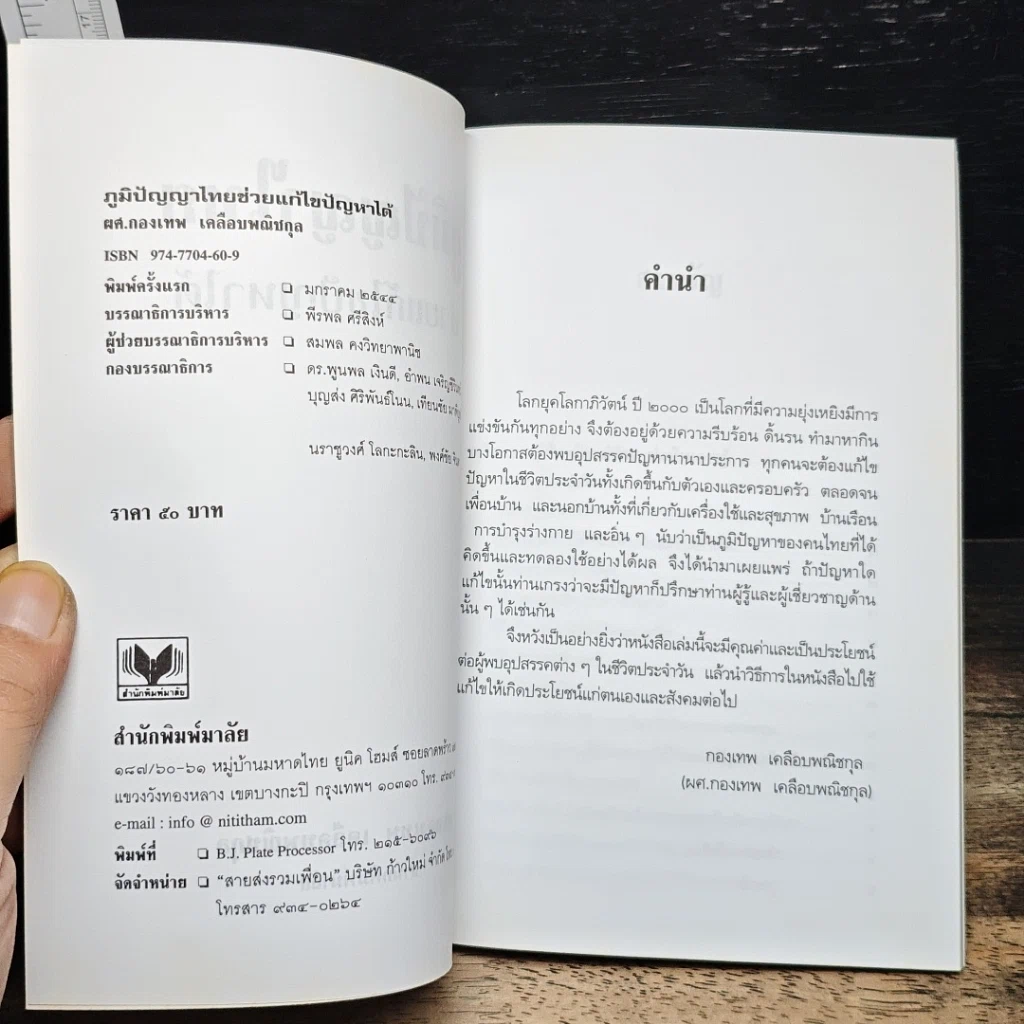 ภูมิปัญญาไทยช่วยแก้ไขปัญหาได้
ผศ.กองเทพ เคลือบพณิชกุล
ISBN 974-7704-60-9
พิมพ์ครั้งแรก ❑ มกราคม ๒๕๔๔
บรรณาธิการบริหาร ❑ พีรพล ศรีสิงห์
ผู้ช่วยบรรณาธิการบริหาร ❑ สมพล คงวิทยาพานิช
กองบรรณาธิการ ❑ ดร.พูนพล เงินดี, อำพน
บุญส่ง ศิริพันธ์โนน, เทียนชัย
นราชูวงศ์ โลกะกะลิน, พงศ์ชัย
ราคา ๕๐ บาท
สำนักพิมพ์มาลัย
สำนักพิมพ์มาลัย
๑๘๗/๖๐-๖๑ หมู่บ้านมหาดไทย ยูนิค โฮมส์ ซอยลาดพร้าว
แขวงวังทองหลาง เขตบางกะปิ กรุงเทพฯ ๑๐๓๑๐ โทร.
e-mail : info @ nititham.com
พิมพ์ที่ ❑ B.J. Plate Processor โทร. ๒๑๕-๖๐๙๖
จัดจำหน่าย ❑ "สายส่งรวมเพื่อน" บริษัท ก้าวใหม่ จำกัด
โทรสาร ๙๓๔-๐๒๖๔
คำนำ
โลกยุคโลกาภิวัตน์ ปี ๒๐๐๐ เป็นโลกที่มีความยุ่งเหยิงมีการ
แข่งขันกันทุกอย่าง จึงต้องอยู่ด้วยความรีบร้อน ดิ้นรน ทำมาหากิน
บางโอกาสต้องพบอุปสรรคปัญหานานาประการ ทุกคนจะต้องแก้ไข
ปัญหาในชีวิตประจำวันทั้งเกิดขึ้นกับตัวเองและครอบครัว ตลอดจน
เพื่อนบ้าน และนอกบ้านทั้งที่เกี่ยวกับเครื่องใช้และสุขภาพ บ้านเรือน
การบำรุงร่างกาย และอื่น ๆ นับว่าเป็นภูมิปัญหาของคนไทยที่ได้
คิดขึ้นและทดลองใช้อย่างได้ผล จึงได้นำมาเผยแพร่ ถ้าปัญหาใด
แก้ไขนั้นท่านเกรงว่าจะมีปัญหาก็ปรึกษาท่านผู้รู้และผู้เชี่ยวชาญด้าน
นั้น ๆ ได้เช่นกัน
จึงหวังเป็นอย่างยิ่งว่าหนังสือเล่มนี้จะมีคุณค่าและเป็นประโยชน์
ต่อผู้พบอุปสรรคต่าง ๆ ในชีวิตประจำวัน แล้วนำวิธีการในหนังสือไปใช้
แก้ไขให้เกิดประโยชน์แก่ตนเองและสังคมต่อไป
กองเทพ เคลือบพณิชกุล
(ผศ.กองเทพ เคลือบพณิชกุล)